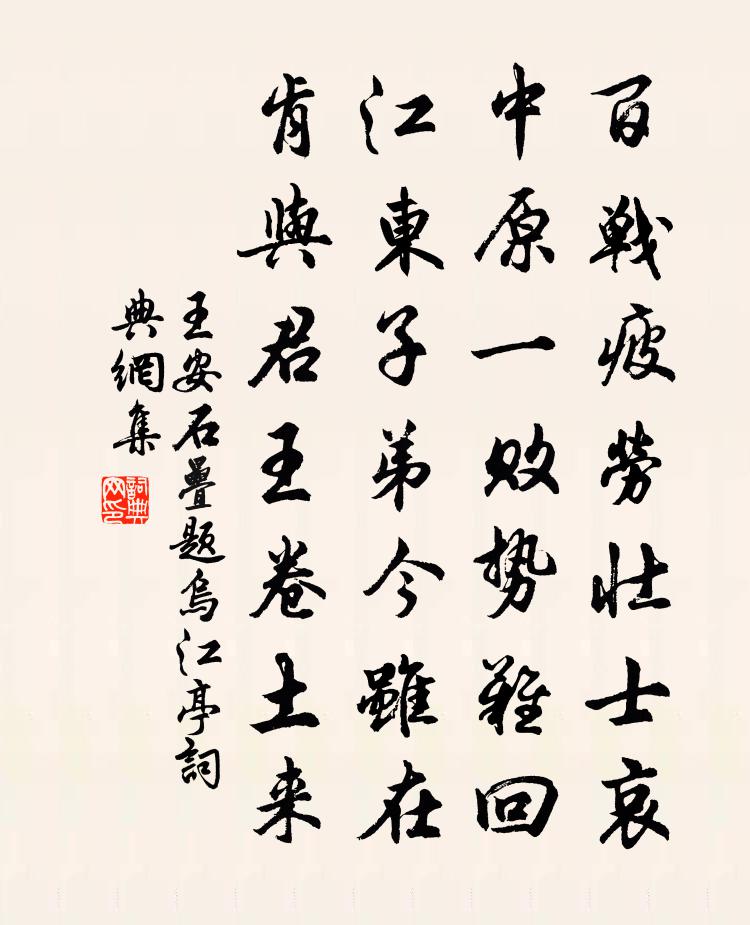 百戰疲勞壮士哀
中原一敗势難回
江東子弟今雖在
肯與君王卷土来
王安石疊題烏江亭詞
典網集
詞典
网印